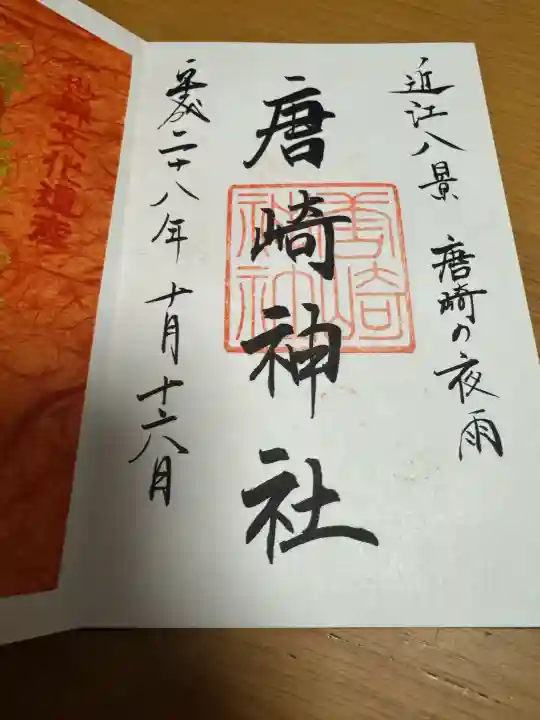 近江八景 唐崎の夜雨
唐崎神社
唐崎神社
平成二十八年 十月 十六日
文化遺産